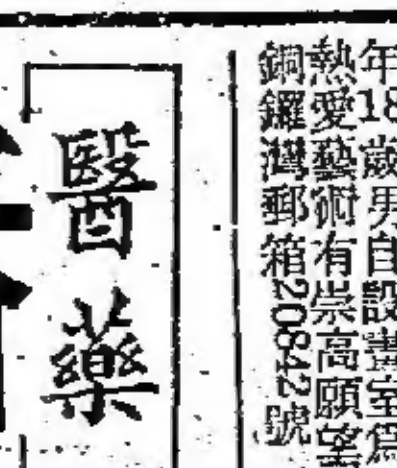 年18歲男自設畫室爲
熱愛藝術有崇高願望
銅鑼灣郵箱20842號
醫藥